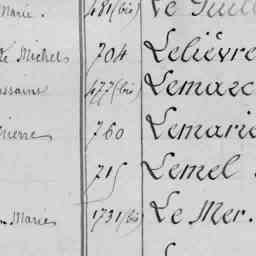 Marie. 481 (bis) Le Guill
Michel 704 Lelièvre
ssaint 477 (bis) Lemasc
Pierre 760 Lemarie
715 Lemel
Marie 1731 (bis) Le Mer.